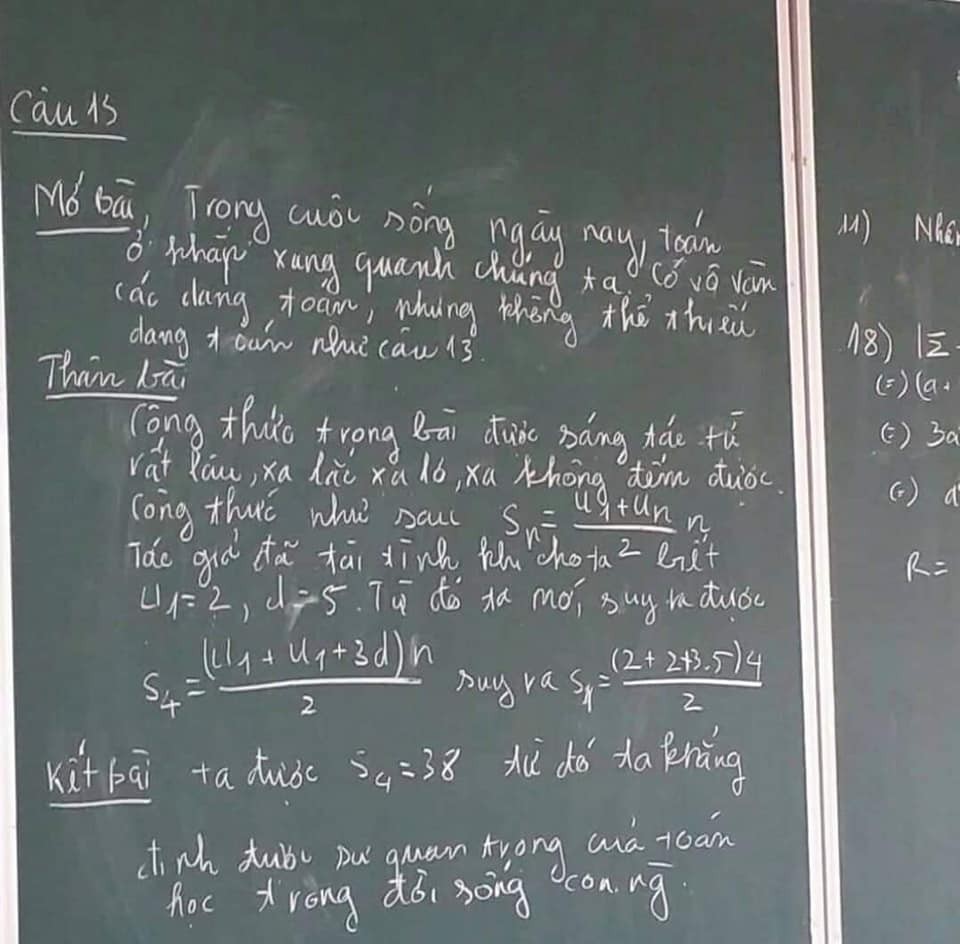 Câu 13
Mở bài, Trong cuộc sống ngày nay, toán
ở khắp xung quanh chúng ta. Có vô vàn
các dạng toán, nhưng không thể thiếu
dạng toán như câu 13.
Thân bài
Công thức trong bài được sáng tác từ
rất lâu, xa lắc xa lơ, xa không đếm được.
Công thức như sau Sn = (u1+un)/2 n
Tác giả đã tài tình khi cho ta biết
U1=2, d=5. Từ đó ta mở, suy ra được
S4 = (U1+U1+3d)n/2 suy ra S4 = (2+2+3.5)4/2
Kết bài ta được S4=38 từ đó ta khẳng
định được sự quan trọng của toán
học trong đời sống con ng̅.
11) Nhân
18) |z
(=) (a+
(=) 3a
(=) a
R=